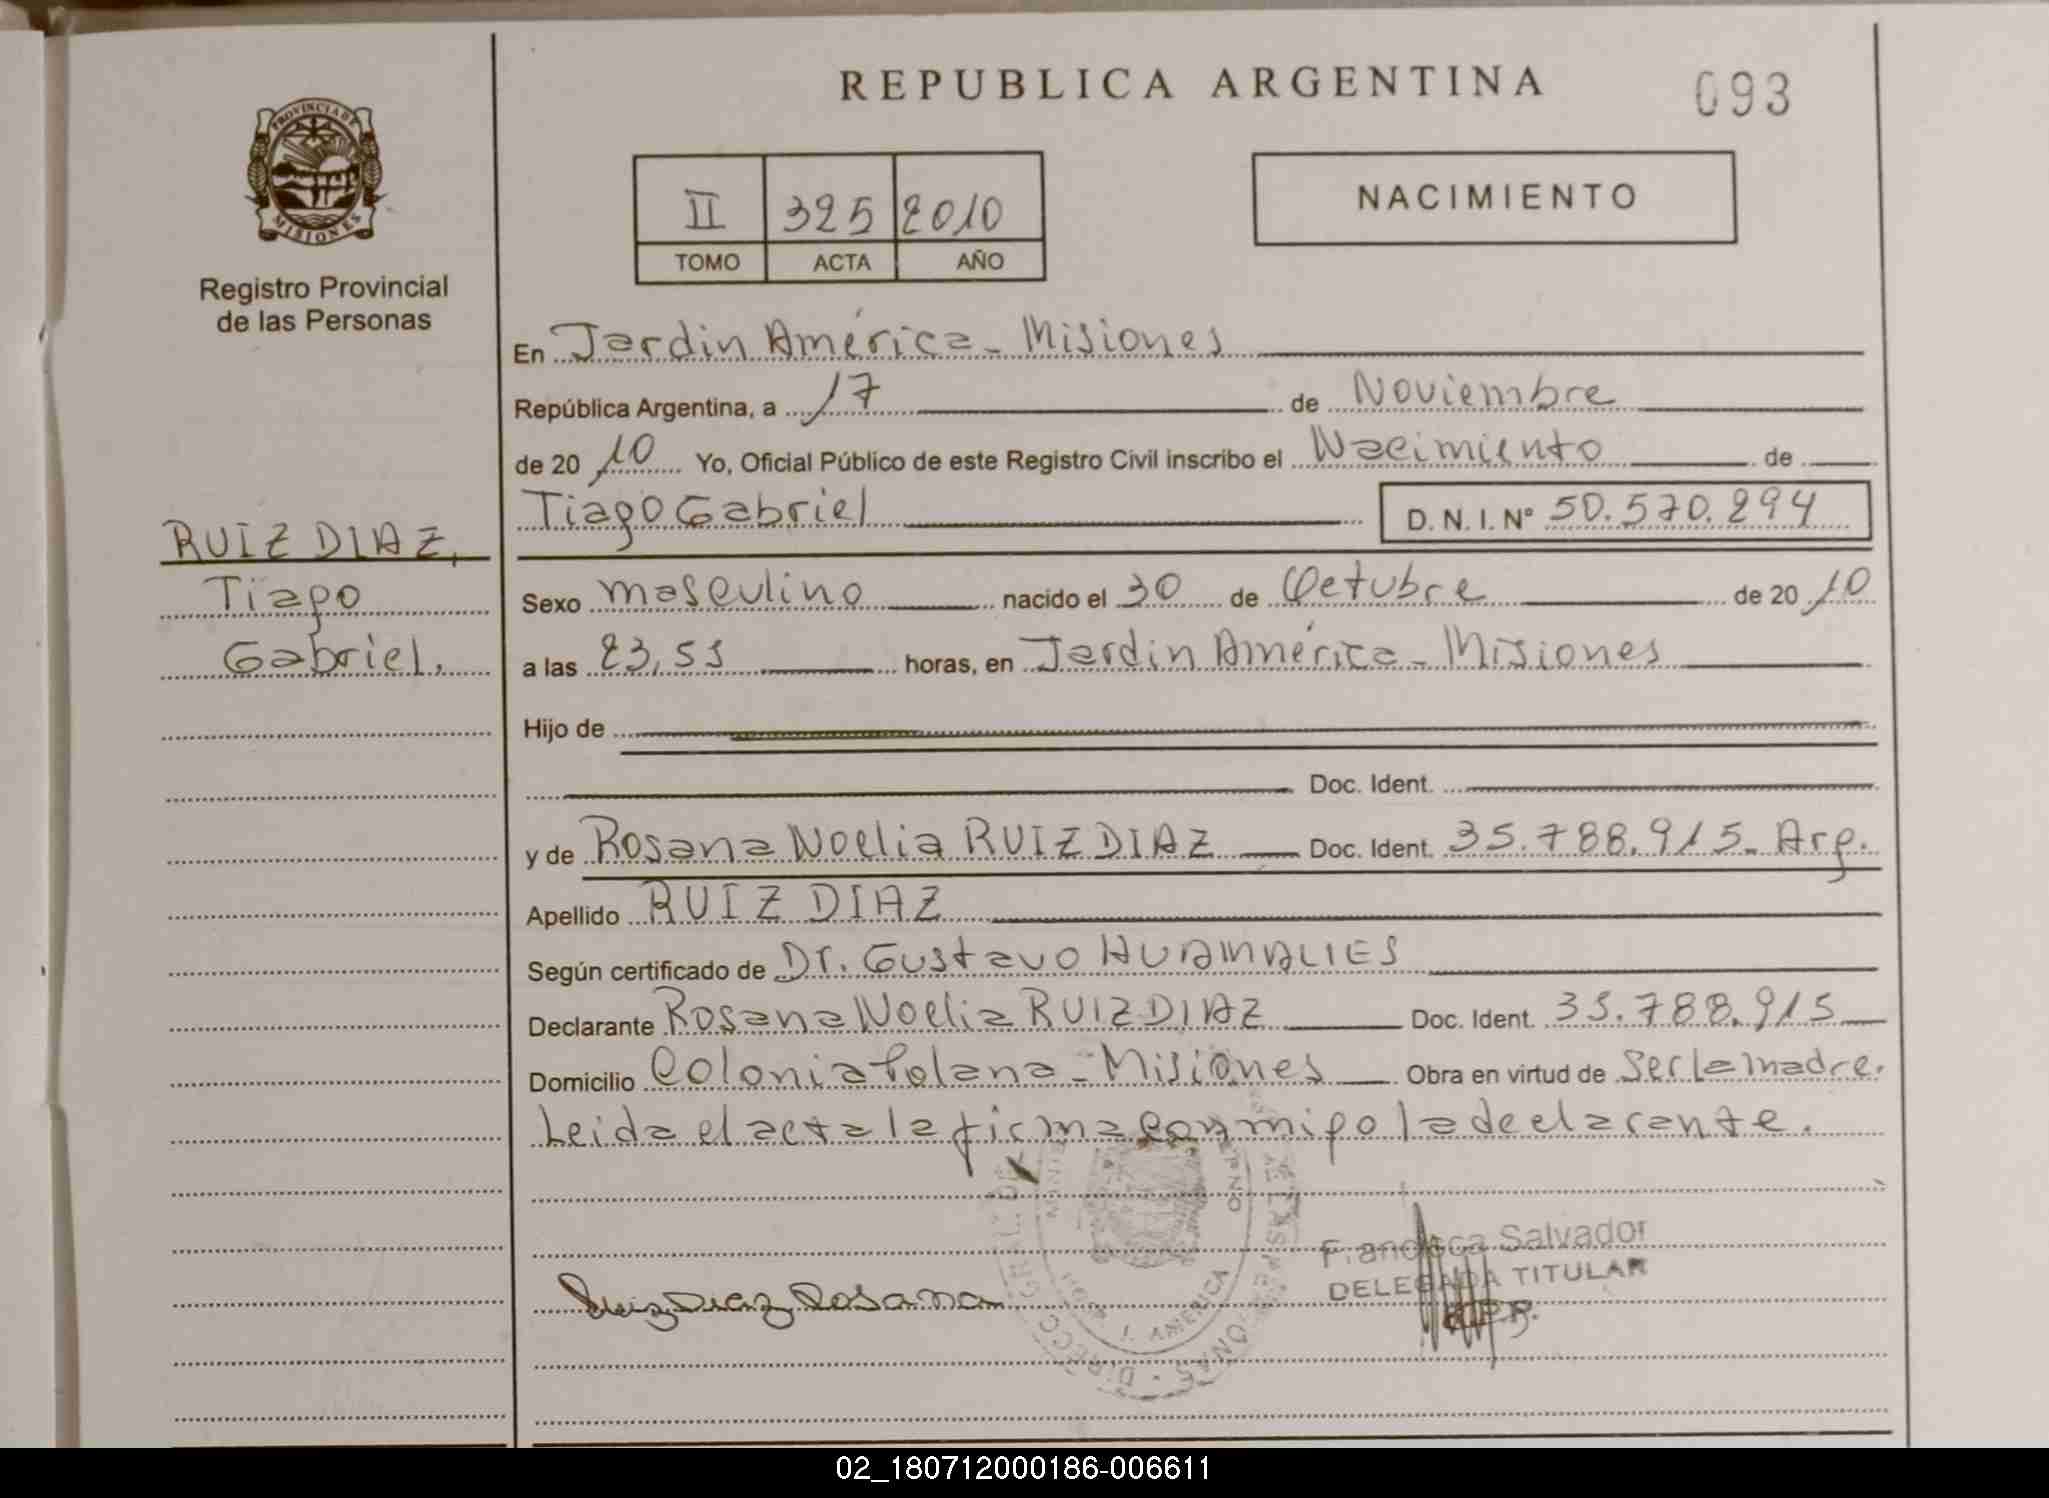 REPUBLICA ARGENTINA
093
PROVINCIA DE
MISIONES
Registro Provincial
de las Personas
II 325 2010
TOMO ACTA AÑO
NACIMIENTO
En Jardin América - Misiones
República Argentina, a 17 de Noviembre
de 2010 Yo, Oficial Público de este Registro Civil inscribo el Nacimiento de
Tiago Gabriel D. N. I. Nº 50.570.294
RUIZ DIAZ,
Tiago
Gabriel.
Sexo masculino nacido el 30 de Octubre de 2010
a las 23,55 horas, en Jardin América - Misiones
Hijo de
Doc. Ident.
y de Rosana Noelia RUIZ DIAZ Doc. Ident. 35.788.915- Arg.
Apellido RUIZ DIAZ
Según certificado de Dr. Gustavo HUAMALIES
Declarante Rosana Noelia RUIZ DIAZ Doc. Ident. 35.788.915
Domicilio Colonia Polana - Misiones Obra en virtud de ser la madre.
Leida el acta la firma con migo la declarante.
Ruiz Diaz Rosana
J. AMERICA
Francisca Salvador
DELEGADA TITULAR
R.P.P.
02_180712000186-006611